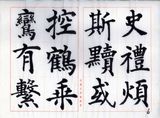 史禮煩
斯黷或
控鶴乘
鸞有繫